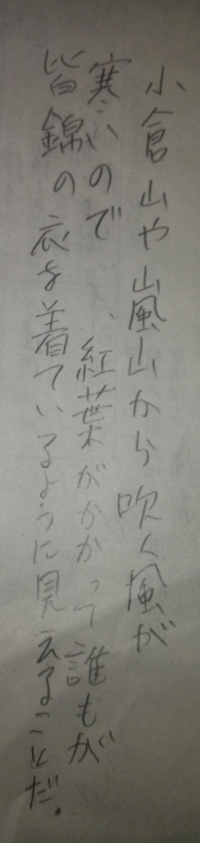 小倉山や嵐山から吹く風が
寒いので、紅葉がかかって誰もが
皆錦の衣を着ているように見えることだ.